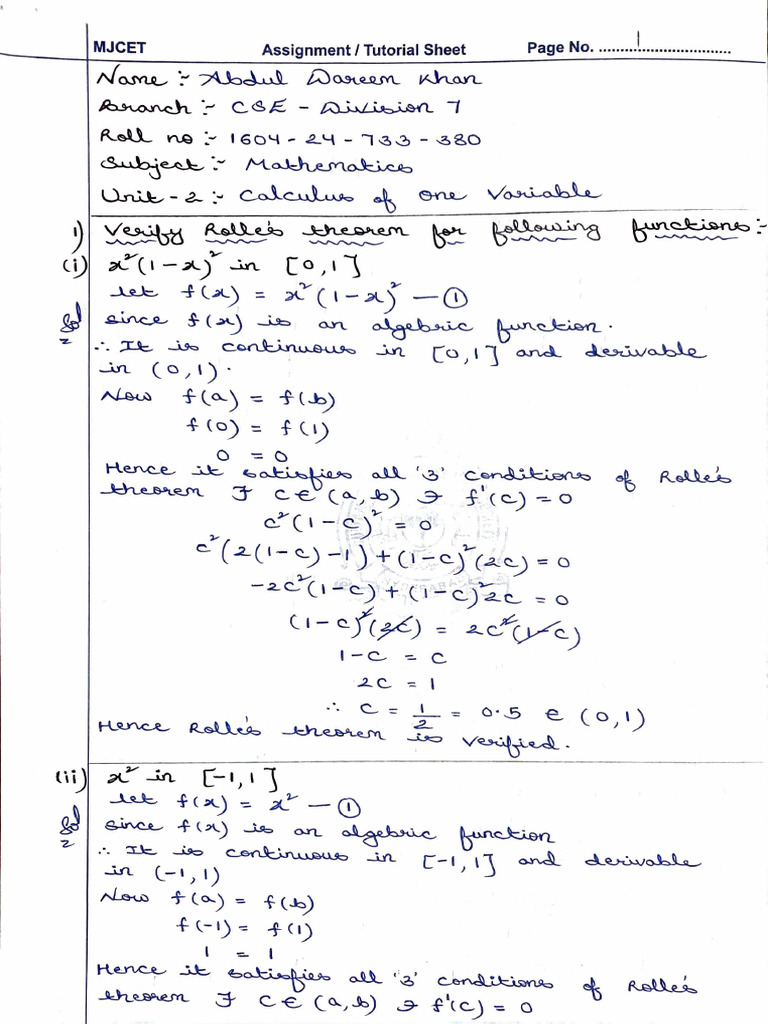 MJCET Assignment / Tutorial Sheet Page No. 1
Name :- Abdul Wareem Khan
Branch :- CSE - Division 7
Roll no :- 1604-24-733-380
Subject :- Mathematics
Unit-2 :- Calculus of One Variable
1) Verify Rolle's theorem for following functions:-
(i) x²(1-x)² in [0,1]
let f(x) = x²(1-x)² — ①
Sol since f(x) is an algebric function.
∴ It is continuous in [0,1] and derivable
in (0,1).
Now f(a) = f(b)
f(0) = f(1)
0 = 0
Hence it satisfies all '3' conditions of Rolle's
theorem ∃ C ∈ (a,b) ∋ f'(c) = 0
c²(1-c)² = 0
c²(2(1-c)-1) + (1-c)²(2c) = 0
-2c²(1-c) + (1-c)²2c = 0
(1-c)²(2c) = 2c²(1-c)
1-c = c
2c = 1
∴ c = 1/2 = 0.5 ∈ (0,1)
Hence Rolle's theorem is verified.
(ii) x² in [-1,1]
let f(x) = x² — ①
Sol since f(x) is an algebric function
∴ It is continuous in [-1,1] and derivable
in (-1,1)
Now f(a) = f(b)
f(-1) = f(1)
1 = 1
Hence it satisfies all '3' conditions of Rolle's
theorem ∃ C ∈ (a,b) ∋ f'(c) = 0